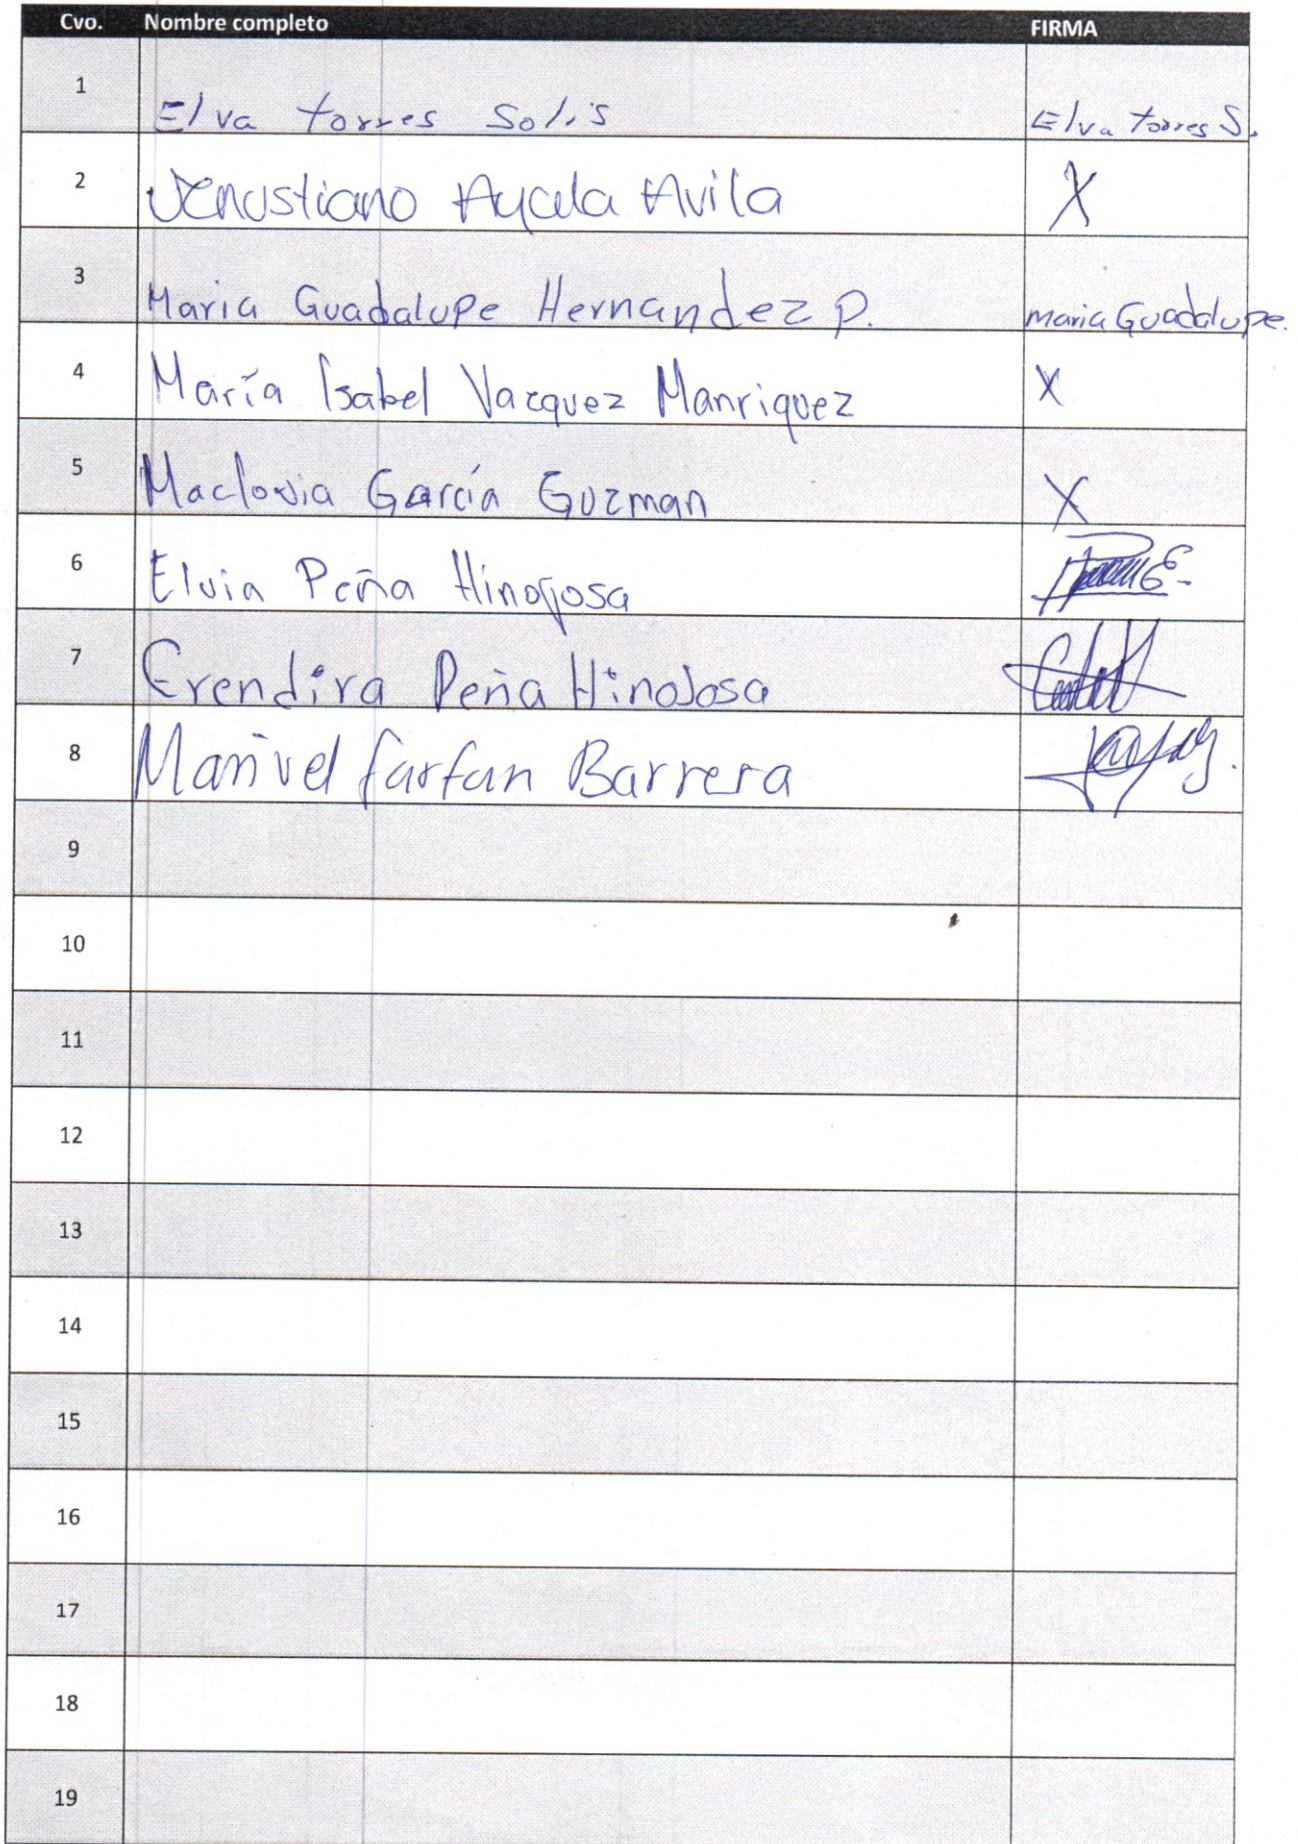 Cvo. Nombre completo FIRMA
1 Elva torres Solis Elva torres S.
2 Venustiano Ayala Avila X
3 Maria Guadalupe Hernandez P. maria Guadalupe.
4 María Isabel Vazquez Manriquez X
5 Maclovia García Guzman X
6 Elvia Peña Hinojosa
7 Erendira Peña Hinojosa
8 Manuel farfan Barrera
9
10
11
12
13
14
15
16
17
18
19